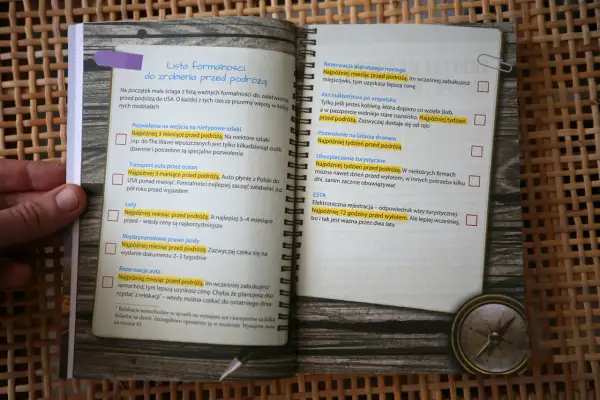 Lista formalności
do zrobienia przed podróżą
Na początek mała ściąga z listą ważnych formalności do załatwienia
przed podróżą do USA. O każdej z tych rzeczy piszemy więcej w kolej-
nych rozdziałach
Pozwolenia na wejścia na nietypowe szlaki
Najpóźniej 3 miesiące przed podróżą. Na niektóre szlaki
(np. do The Wave) wpuszczanych jest tylko kilkadziesiąt osób
dziennie i potrzebne są specjalne pozwolenia
Transport auta przez ocean
Najpóźniej 3 miesiące przed podróżą. Auto płynie z Polski do
USA ponad miesiąc. Formalności najlepiej zacząć załatwiać już
pół roku przed wyjazdem
Loty
Najpóźniej miesiąc przed podróżą. A najlepiej 3–4 miesiące
przed – wtedy ceny są najkorzystniejsze
Międzynarodowe prawo jazdy
Najpóźniej miesiąc przed podróżą. Zazwyczaj czeka się na
wydanie dokumentu 2–3 tygodnie
Rezerwacja auta
Najpóźniej miesiąc przed podróżą. Im wcześniej zabukujesz
samochód, tym lepszą uzyskasz cenę. Chyba że planujesz sko-
rzystać z relokacji* – wtedy można czekać do ostatniego dnia
* Relokacja samochodów to sposób na wynajem aut i kamperów za kilka
dolarów za dzień. Szczegółowo opisujemy ją w rozdziale Wynajem auta
na stronie
Rezerwacja pierwszego noclegu
Najpóźniej miesiąc przed podróżą. Im wcześniej zabukujesz
miejscówki, tym lepszą uzyskasz cenę
Akt małżeństwa po angielsku
Tylko jeśli jesteś kobietą, która dopiero co wzięła ślub,
a w paszporcie widnieje stare nazwisko. Najpóźniej tydzień
przed podróżą. Zazwyczaj dostaje się od ręki
Pozwolenie na latanie dronem
Najpóźniej tydzień przed podróżą
Ubezpieczenie turystyczne
Najpóźniej tydzień przed podróżą. W niektórych firmach
można nawet dzień przed wylotem, w innych potrzeba kilku
dni, zanim zacznie obowiązywać
ESTA
Elektroniczna rejestracja – odpowiednik wizy turystycznej
Najpóźniej 72 godziny przed wylotem. Ale lepiej wcześniej,
bo i tak jest ważna przez dwa lata